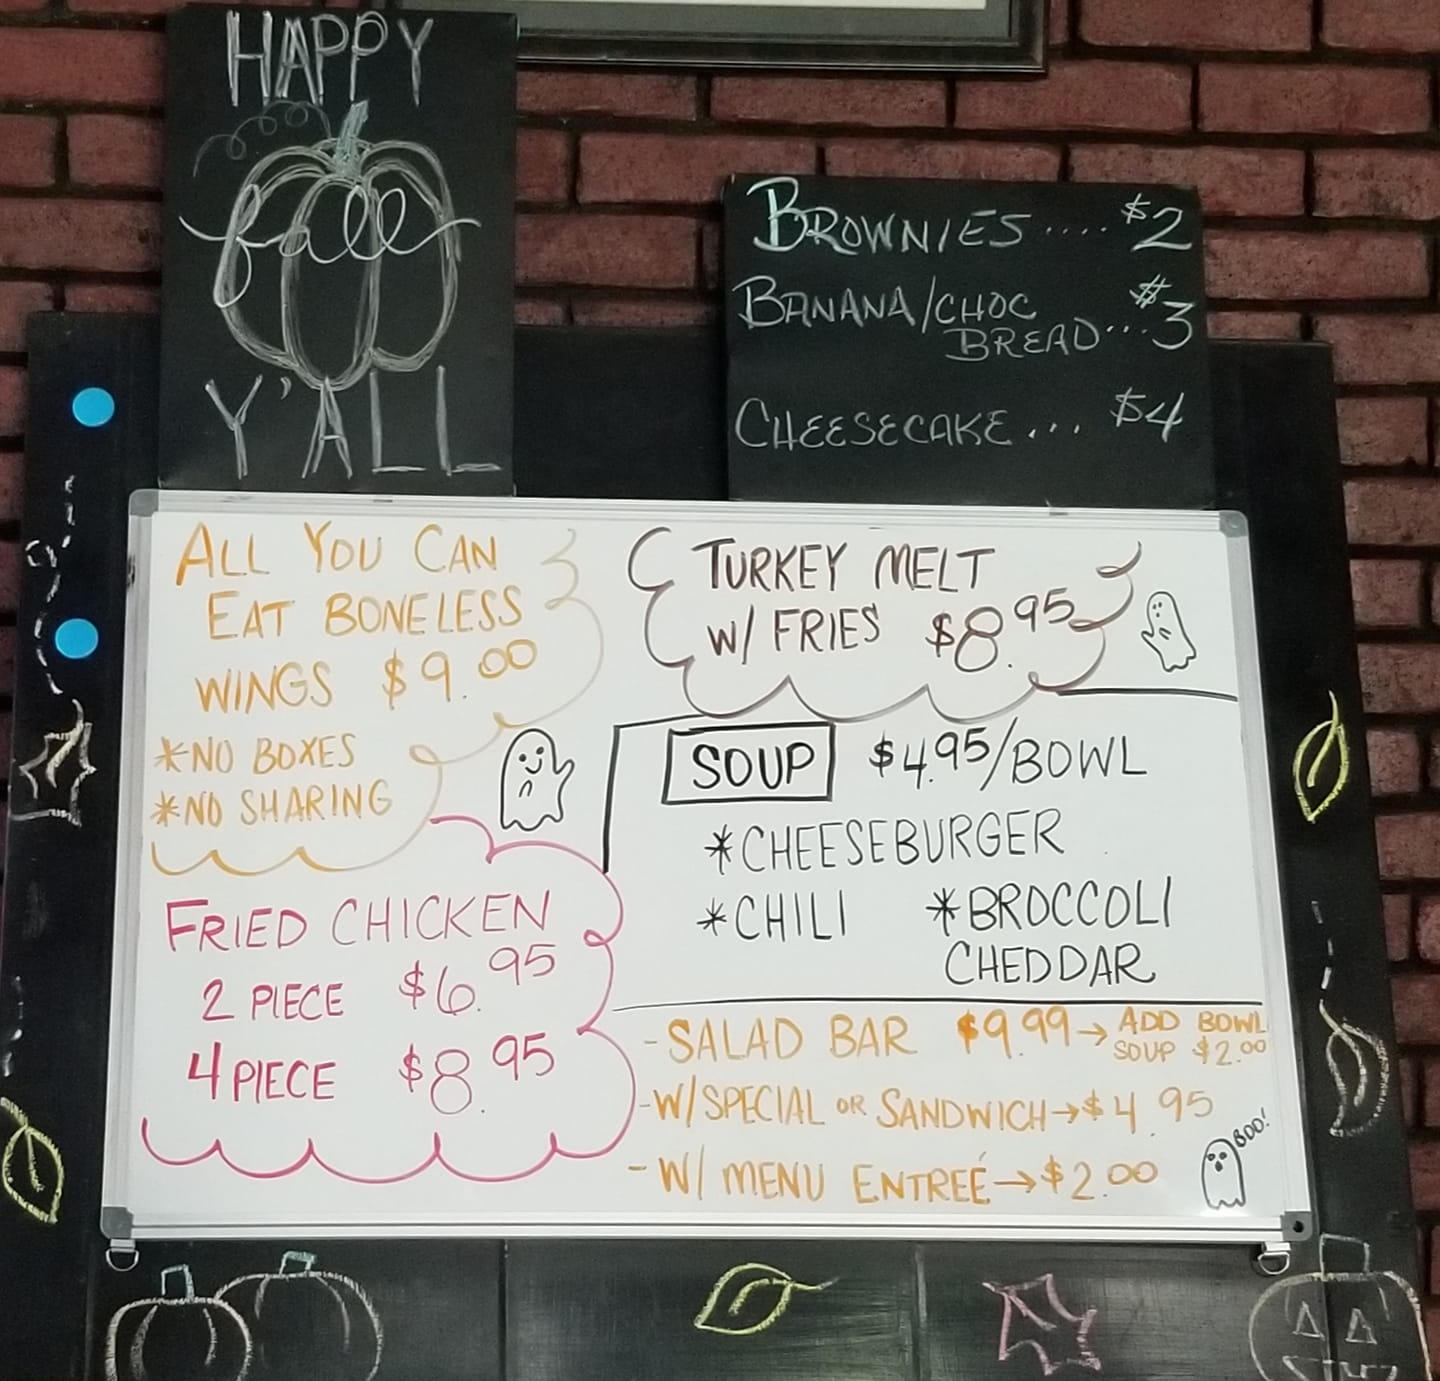 HAPPY
fall
Y'ALL
BROWNIES .... $2
BANANA/CHOC
BREAD ... $3
CHEESECAKE ... $4
ALL YOU CAN
EAT BONELESS
WINGS $9.00
*NO BOXES
*NO SHARING
FRIED CHICKEN
2 PIECE $6.95
4 PIECE $8.95
TURKEY MELT
W/ FRIES $8.95
SOUP $4.95/BOWL
*CHEESEBURGER
*CHILI *BROCCOLI
CHEDDAR
-SALAD BAR $9.99→ ADD BOWL
SOUP $2.00
-W/SPECIAL OR SANDWICH→$4.95
-W/ MENU ENTREÉ→$2.00
BOO!